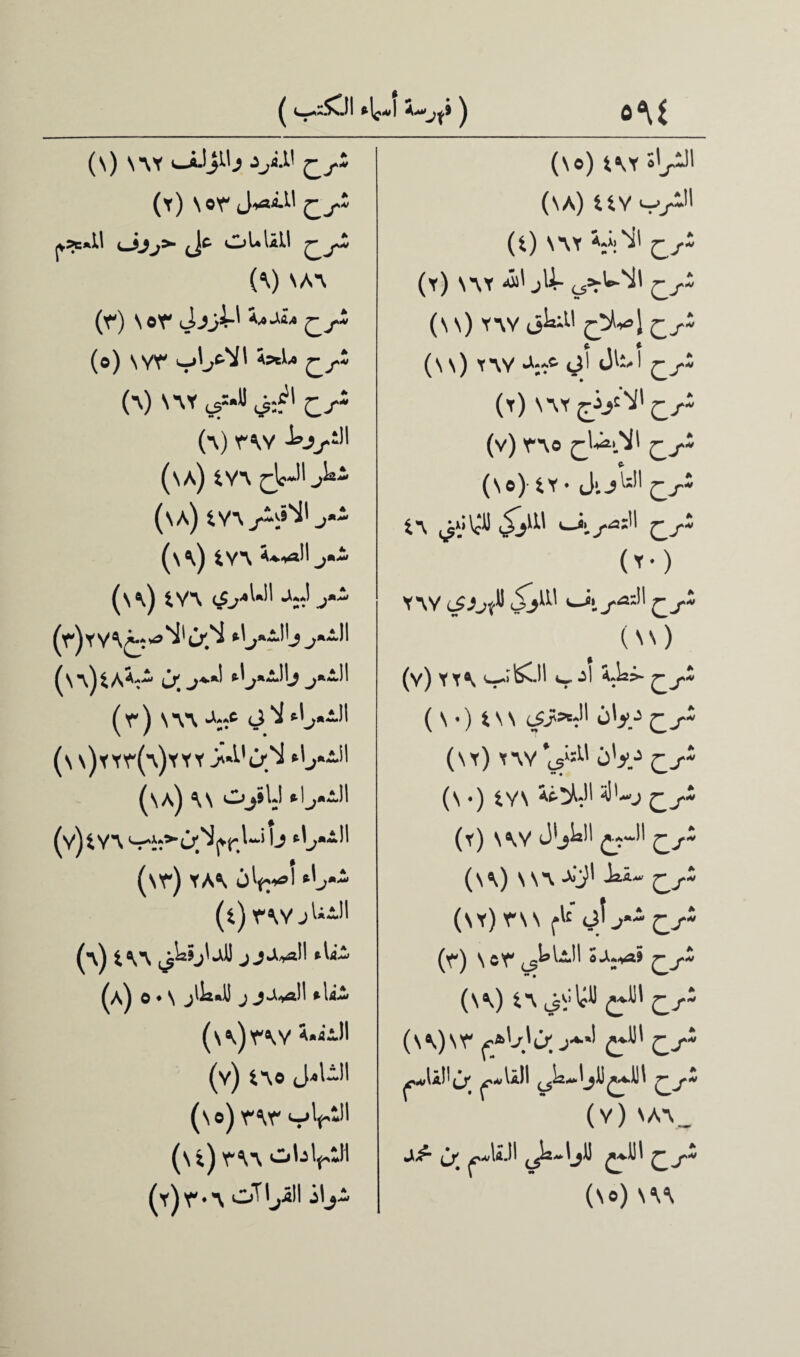 ٥٩٤ ( فهرسة أسماء الكتب )
الشراة ٤٩٢ (١٥)
الشرب ٤٤٧ (١٨)
شرح الأبنية ١٦٢ (٤)
شرح الأحاجى لجار الله ١٦٢ (٢)
شرح إصلاح المنطق ٢٦٧ (١١)
شرح أمثال أبى عبيد ٢٦٧ (١١)
شرح الأنموذج ١٦٢ (٢)
شرح الإيضاح ٣٦٥ (٧)
شرح التأريل ٤٢٠ (١٥)
شرح التصريف الملوكى للثمانينى ٤٦
(٢٠)
شرح التصريف الملوكى للهروى ٢٦٧
(١١)
شرح خطبة أدب الكاتب ٢٢٩ (٧)
شرح ديوان البحترى ٤١١ (١٠)
شرح ديوان المتنبى ٢٦٧ (١٢)
شرح رسالة البلاغة ٤٧١ (١٠)
شرح السبع الطوال ١٩٧ (٢)
شرح سقط الزند ١١٦ (١٩)
شرح شعر أبى تمام ٣١١ (١٢)
شرح قصيدة الشاطبى ١٥٣ (٣)
شرح اللمع للثمانينى ٤٦ (١٩)
شرح اللمع لعمر بن ابراهيم ١٣ (١٩)
شرح اللمع للواسطى القاسم بن القاسم
١٨٦ (٧)
شرح اللمع للواسطى القاسم بن محمد
١٩٩ (١٥)
شرح المفرد والمؤلف ١٦٢ (١)
شرح المفصل ١٥٣ (٢)
شرح المقامات على حروف المعجم
١٨٦ (٩)
شرح مقدمة الجزولى ١٥٣ (٣)
شرح ملحة الأعراب ١٧٣ (٥)
شرح اليمينى للعتبى ١٦٢ (٦)
الشروط ٣٩٧ (٦)
شطر السماع ٤٧٦ (١٨)
شعر الأقيشر ٤٧٦ (١٨)
شعر الصمة ٤٧٦ (١٩)
شعر لبيد العامرى ٤٧٦ (١٩)
الشعر والشعراء لابن الأصبغ ٢٧٩ (٣)
الشعر والشعراء لعمر بن شبة ٤٨ (١٦)
الشعراء لأبى عبيد ١٦٦ (٣)
الشعراء لابن المعذر ٢٢٢ (٦) ٢٢٣ (١١)
الشعراء لياقوت ٩١ (١٨)
الشعراء وأنسابهم لابن حبيب ٤٧٦ (٧)
شعراء أصبهان ٢٨٩ (١٣)
الشغار ٣٩٧ (٤)
شفاء الصدور للدارقطنى ٤٩٦ (٦)
شفاء الصدور للعطار ٥٠١ (٨)
الشفعة ٣٩٧ (١٩)
الشمائل ٤٦٥ (٧)
الشهاب ٣٩٣ (١٥)
الشهادات ٣٩٦ (١٤)
شواذ القرآات ٣٠٦ (٢)